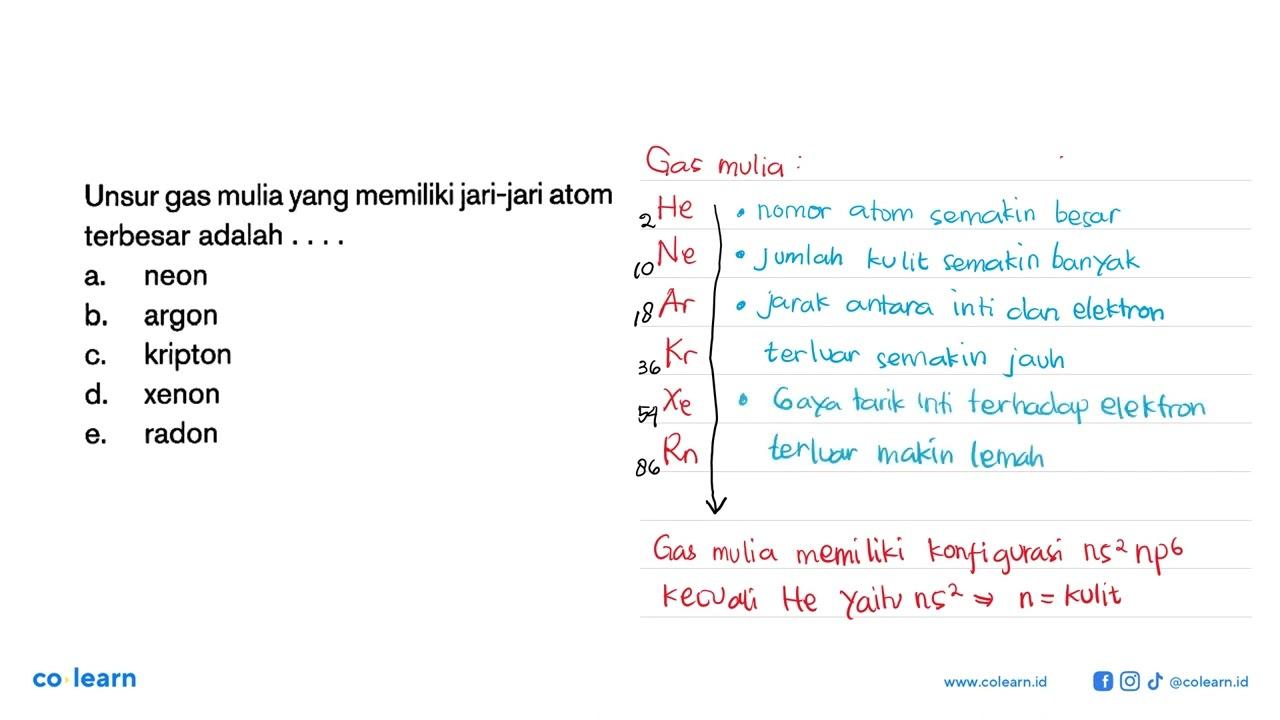 Unsur gas mulia yang memiliki jari-jari atom
terbesar adalah . . . .
a. neon
b. argon
c. kripton
d. xenon
e. radon
Gas mulia :
2 He
10 Ne
18 Ar
36 Kr
54 Xe
86 Rn
• nomor atom semakin besar
• jumlah kulit semakin banyak
• jarak antara inti dan elektron
terluar semakin jauh
• Gaya tarik inti terhadap elektron
terluar makin lemah
Gas mulia memiliki konfigurasi ns² np⁶
kecuali He yaitu ns² ⇒ n = kulit
co learn
www.colearn.id
@colearn.id